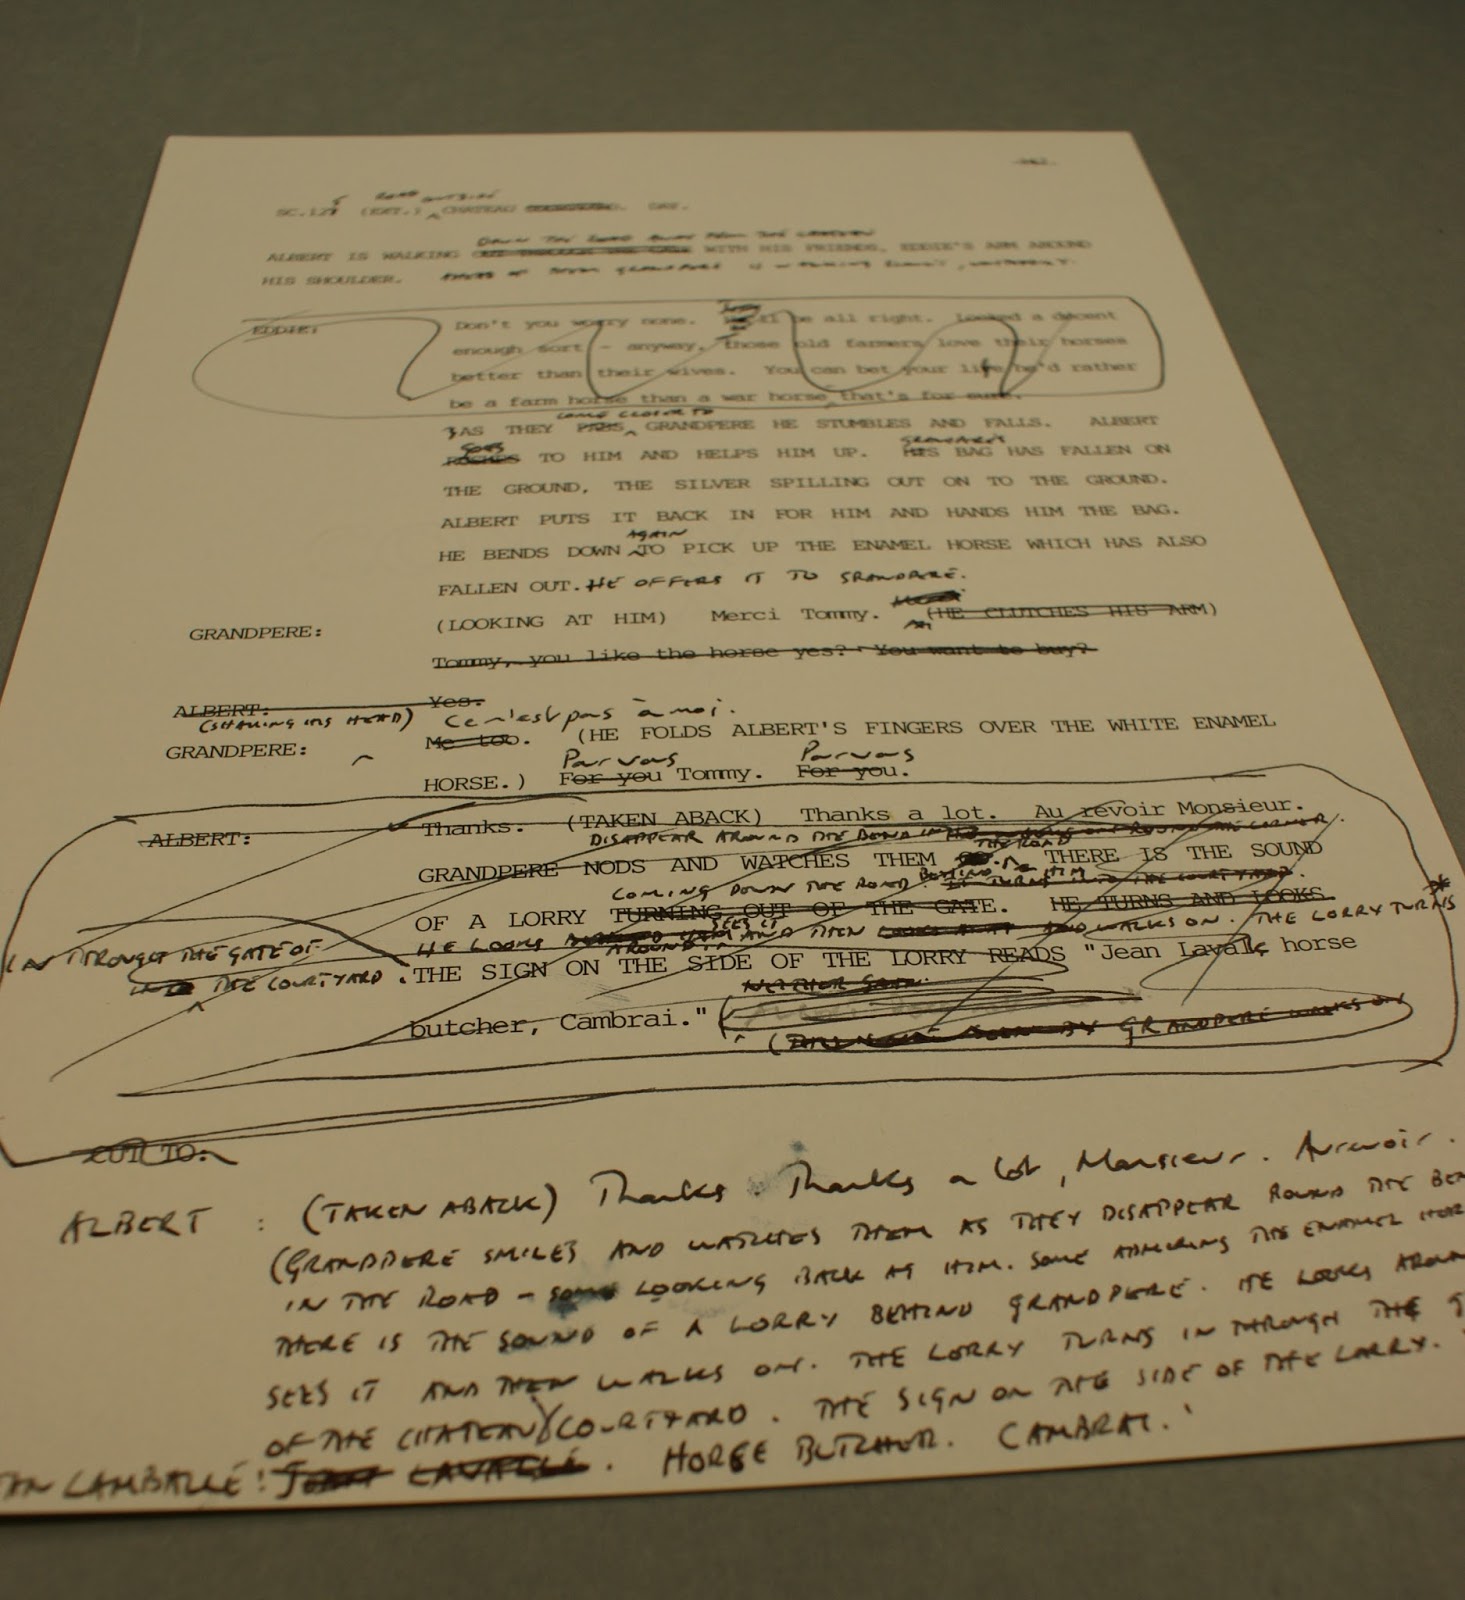 ROAD OUTSIDE
SC.127 (EXT.) CHATEAU DAY.
DOWN THE ROAD AWAY FROM THE CHATEAU
ALBERT IS WALKING WITH HIS FRIENDS, EDDIE'S ARM AROUND
HIS SHOULDER. GRANDPERE IS WALKING
EDDIE: Don't you worry none. be all right. Looked a decent
enough sort - anyway, those old farmers love their horses
better than their wives. You can bet your life he'd rather
be a farm horse than a war horse, that's for sure.
COME CLOSER TO
AS THEY PASS GRANDPERE HE STUMBLES AND FALLS. ALBERT
GOES GRANDPERE'S
RUSHES TO HIM AND HELPS HIM UP. HIS BAG HAS FALLEN ON
THE GROUND, THE SILVER SPILLING OUT ON TO THE GROUND.
ALBERT PUTS IT BACK IN FOR HIM AND HANDS HIM THE BAG.
AGAIN
HE BENDS DOWN TO PICK UP THE ENAMEL HORSE WHICH HAS ALSO
FALLEN OUT. HE OFFERS IT TO GRANDPERE.
GRANDPERE: (LOOKING AT HIM) Merci Tommy. (HE CLUTCHES HIS ARM)
Tommy, you like the horse yes? You want to buy?
ALBERT: Yes.
(SHAKING HIS HEAD) Ce n'est pas à moi.
GRANDPERE: Me too. (HE FOLDS ALBERT'S FINGERS OVER THE WHITE ENAMEL
Pour vous Pour vous
HORSE.) For you Tommy. For you.
ALBERT: Thanks. (TAKEN ABACK) Thanks a lot. Au revoir Monsieur.
DISAPPEAR AROUND THE BEND IN ROUND THE CORNER.
THE ROAD
GRANDPERE NODS AND WATCHES THEM THERE IS THE SOUND
COMING DOWN THE ROAD BEHIND HIM IT TURNS INTO THE COURTYARD.
OF A LORRY TURNING OUT OF THE GATE. HE TURNS AND LOOKS
HE LOOKS AROUND SEES IT AND THEN WALKS ON. THE LORRY TURNS
IN THROUGH THE GATE OF
THE COURTYARD. THE SIGN ON THE SIDE OF THE LORRY READS "Jean Lavalle horse
butcher, Cambrai."
GRANDPERE WALKS ON
CUT TO:
ALBERT : (TAKEN ABACK) Thanks. Thanks a lot, Monsieur. Aurevoir.
(GRANDPERE SMILES AND WATCHES THEM AS THEY DISAPPEAR ROUND THE
IN THE ROAD - SOME LOOKING BACK AT HIM. SOME ADMIRING THE ENAMEL
THERE IS THE SOUND OF A LORRY BEHIND GRANDPERE. HE LOOKS
SEES IT AND THEN WALKS ON. THE LORRY TURNS IN THROUGH THE
OF THE CHATEAU COURTYARD. THE SIGN ON THE SIDE OF THE LORRY.
LAMBALLE: LAVALLE. HORSE BUTCHER. CAMBRAI.'